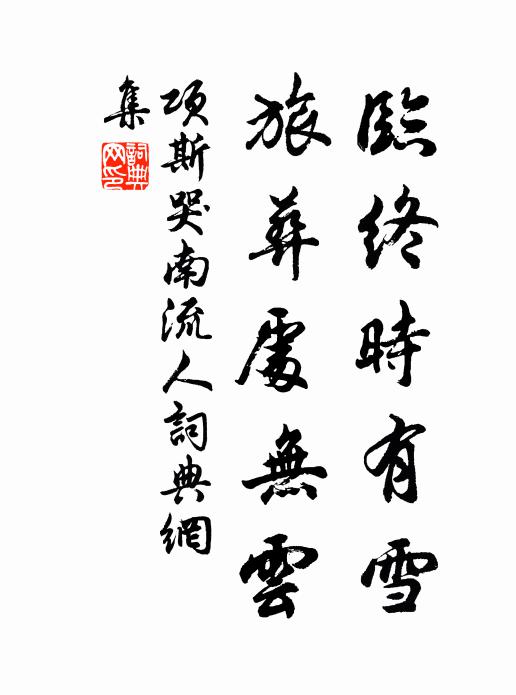 臨終時有雪
旅葬處無雲
項斯哭南流人詞典網
集
詞典網印